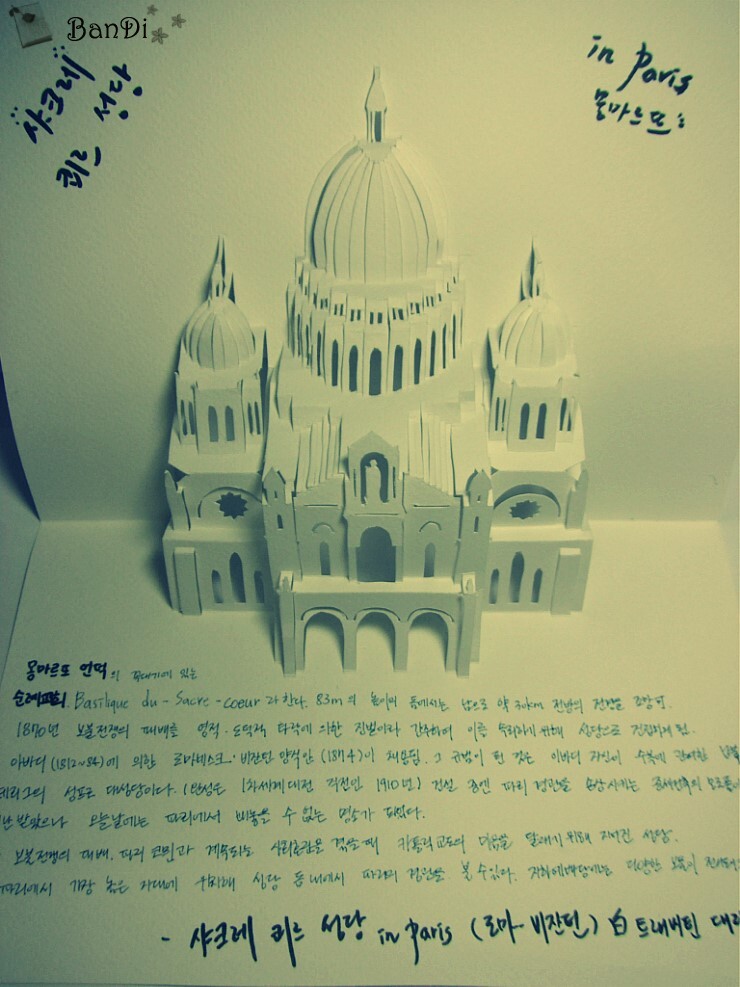 BanDi
샤크레
쾨르 성당
in Paris
몽마르뜨
몽마르뜨 언덕의 꼭대기에 있는
순례교회 Basilique du - Sacre - coeur 라 한다. 83m의 높이의 돔에서는 남으로 약 30km 전방의 전망을 조망됨.
1870년 보불전쟁의 패배를 영적·도덕적 타락에 의한 진벌이라 간주하여 이를 속죄하기 위해 성당으로 건립하게 됨.
아바디 (1812~84)에 의한 로마네스크·비잔틴 양식안 (1874)이 채택됨. 그 규범이 된 것은 아바디 자신이 수복에 관여한
성 프로 대성당이다. (완성은 1차세계대전 직전인 1910년) 건설 중엔 파리 경관을 손상시키는
난 받았으나 오늘날에는 파리에서 빼놓을 수 없는 명소가 되었다.
보불전쟁의 패배, 파리 코뮌과 계속되는 사회혼란을 겪을 때 카톨릭교도의 마음을 달래기 위해 지어진 성당.
파리에서 가장 높은 지대에 위치해 성당 돔 내에서 파리의 경관을 볼 수 있다. 지하예배당에는 다양한 보물이
- 샤크레 쾨르 성당 in Paris (로마-비잔틴) 白 트래버틴 대리